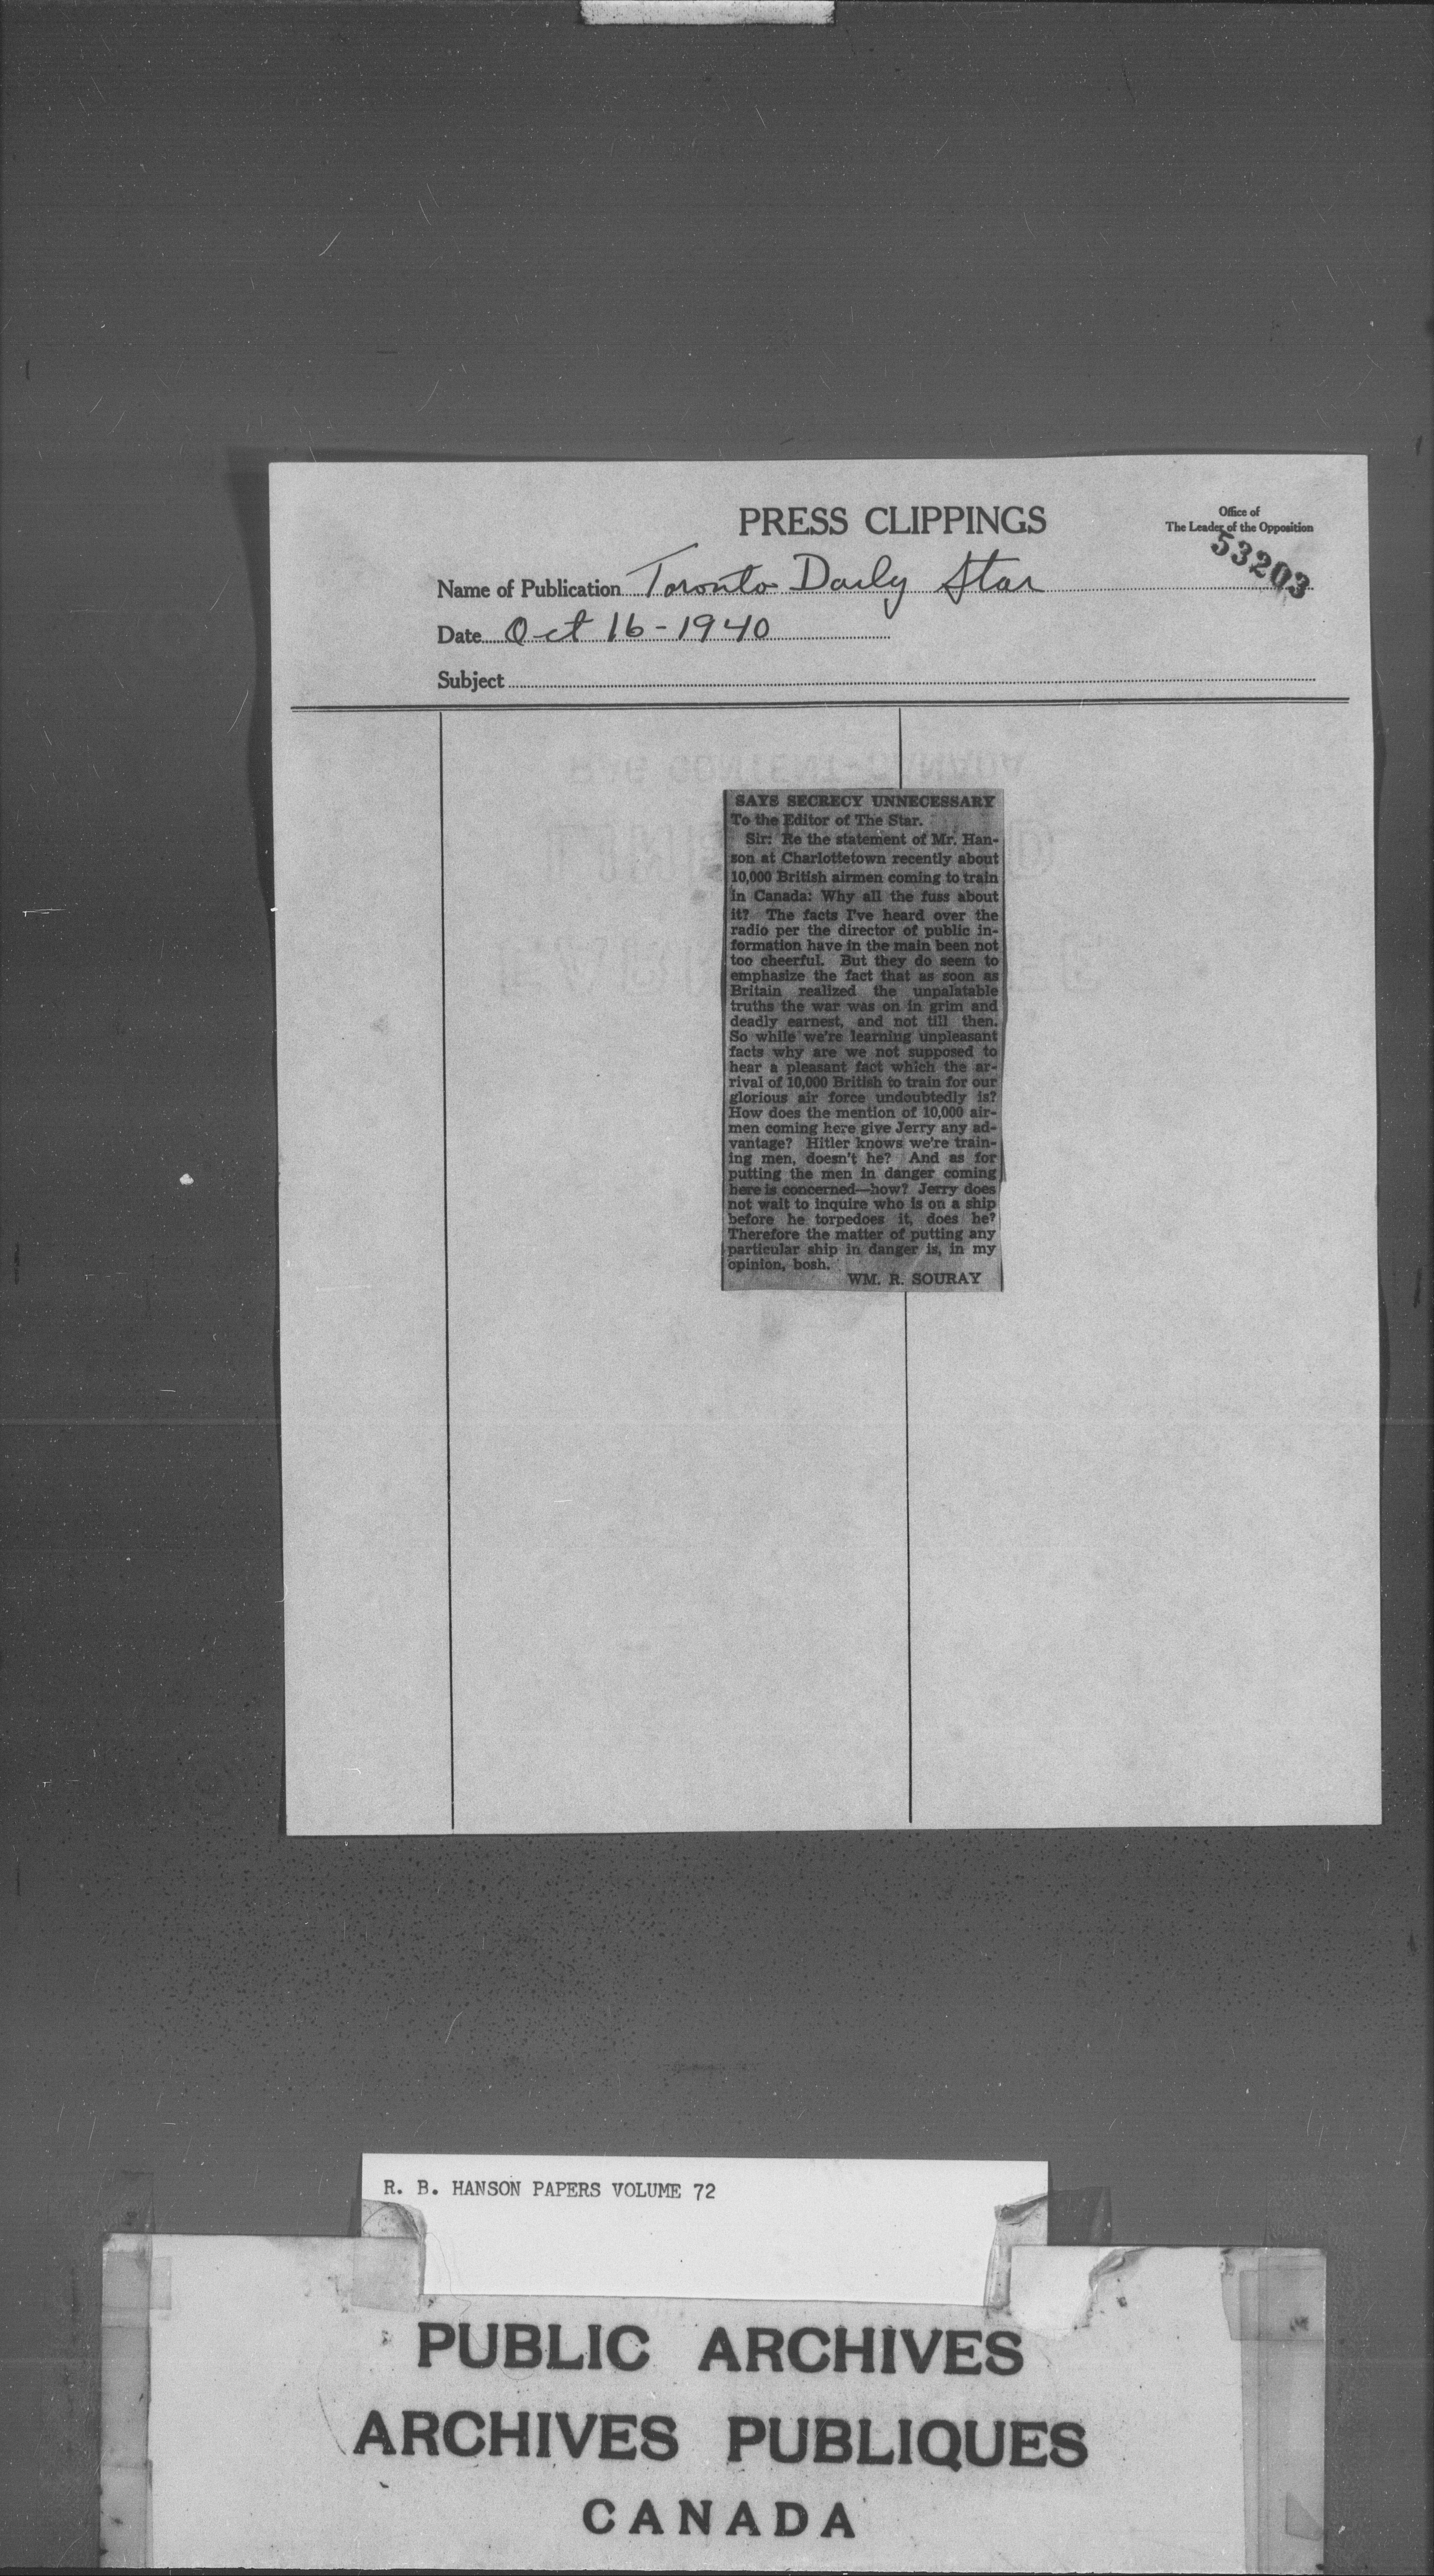 PRESS CLIPPINGS
Office of
The Leader of the Opposition
53203
Name of Publication Toronto Daily Star
Date Oct 16-1940
Subject
SAYS SECRECY UNNECESSARY
To the Editor of The Star.
Sir: Re the statement of Mr. Han-
son at Charlottetown recently about
10,000 British airmen coming to train
in Canada: Why all the fuss about
it? The facts I've heard over the
radio per the director of public in-
formation have in the main been not
too cheerful. But they do seem to
emphasize the fact that as soon as
Britain realized the unpalatable
truths the war was on in grim and
deadly earnest, and not till then.
So while we're learning unpleasant
facts why are we not supposed to
hear a pleasant fact which the ar-
rival of 10,000 British to train for our
glorious air force undoubtedly is?
How does the mention of 10,000 air-
men coming here give Jerry any ad-
vantage? Hitler knows we're train-
ing men, doesn't he? And as for
putting the men in danger coming
here is concerned—how? Jerry does
not wait to inquire who is on a ship
before he torpedoes it, does he?
Therefore the matter of putting any
particular ship in danger is, in my
opinion, bosh.
WM. R. SOURAY
R. B. HANSON PAPERS VOLUME 72
PUBLIC ARCHIVES
ARCHIVES PUBLIQUES
CANADA